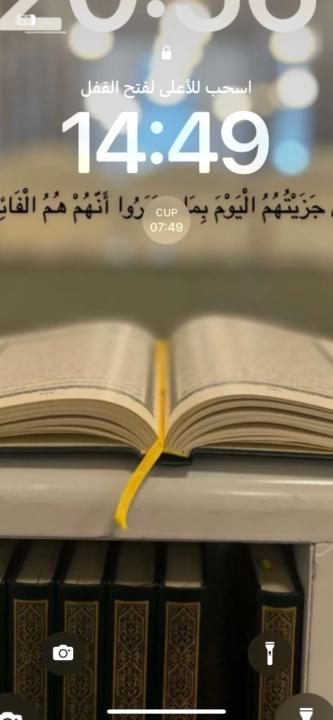 20:36
اسحب للأعلى لفتح القفل
14:49
جَزَيْتُهُمُ الْيَوْمَ بِمَا أَنَّهُمْ هُمُ
CUP
07:49